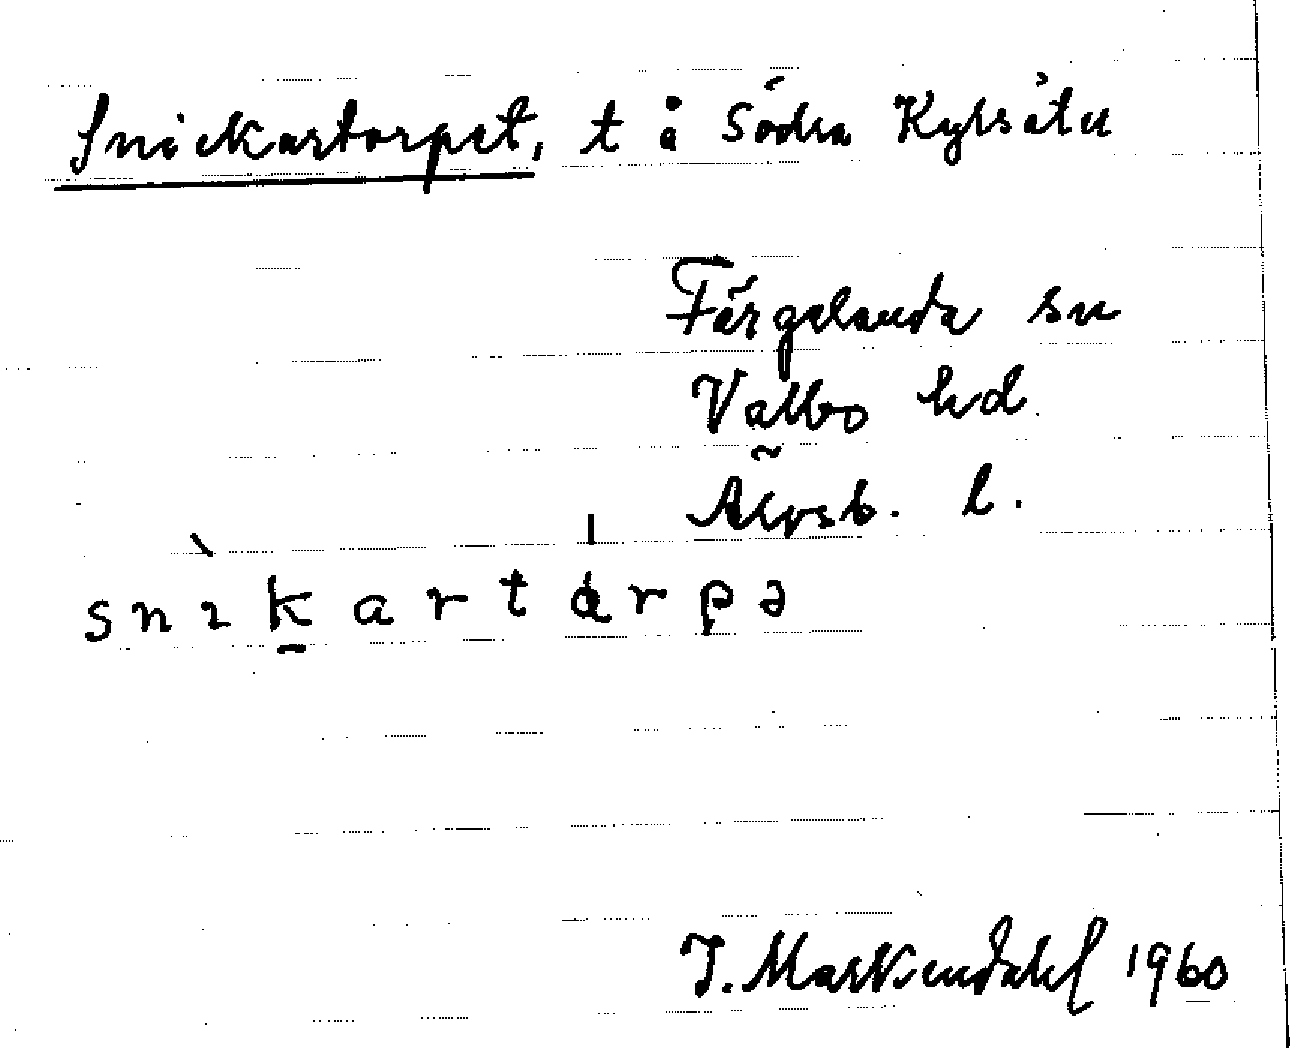 Snickartorpet, t å Södra Kylsäter
Färgelanda sn
Valbo hd.
Älvsb. l.
snìkartårpə
J. Markendahl 1960